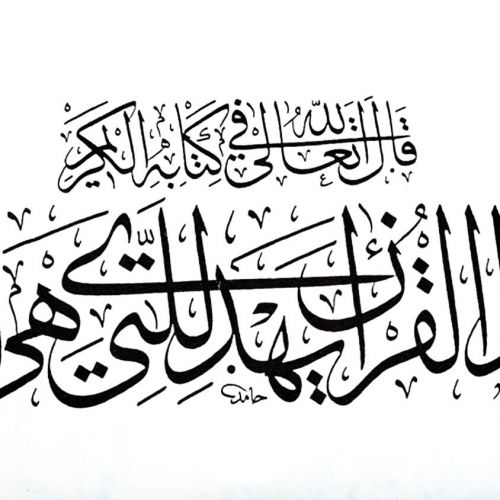 قَالَ اللَّهُ تَعَالَى فِي كِتَابِهِ الْكَرِيمِ
الْقُرْآنَ يَهْدِي لِلَّتِي هِيَ
حامد